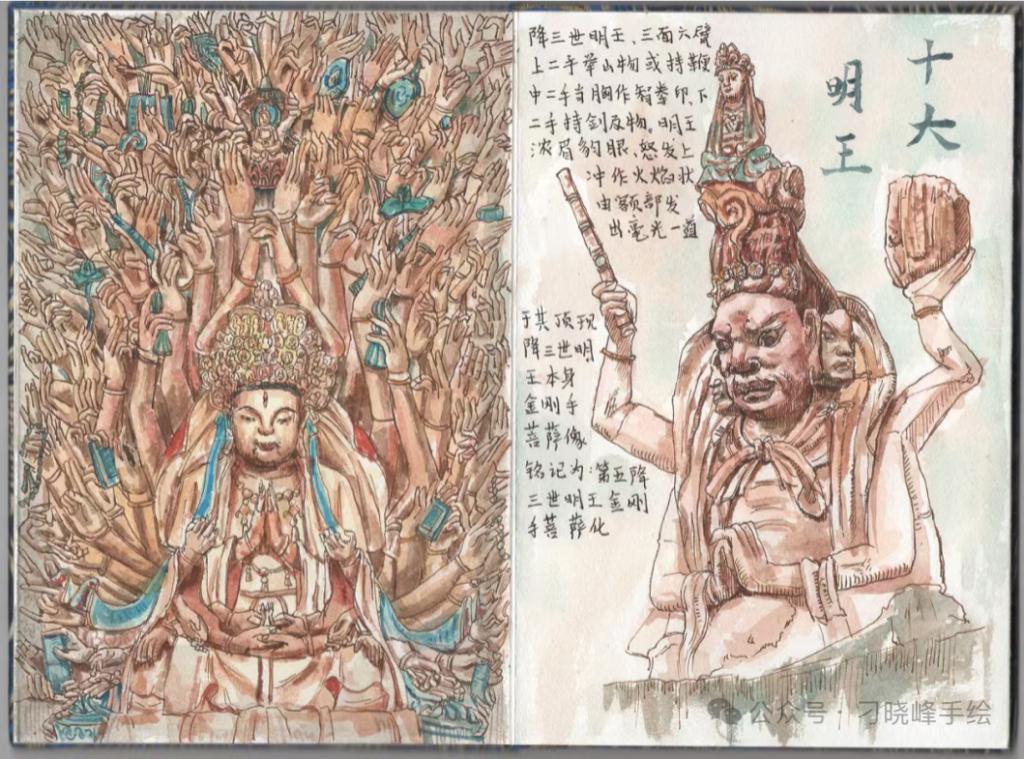 十大
明王
降三世明王、三面六臂
上二手举山物或持鞭
中二手当胸作智拳印、下
二手持剑及物。明王
浓眉豹眼、怒发上
冲作火焰状
由额部发
出毫光一道
于其顶现
降三世明
王本身
金刚手
菩萨像
铭记为:第五降
三世明王金刚
手菩萨化
公众号·刁晓峰手绘